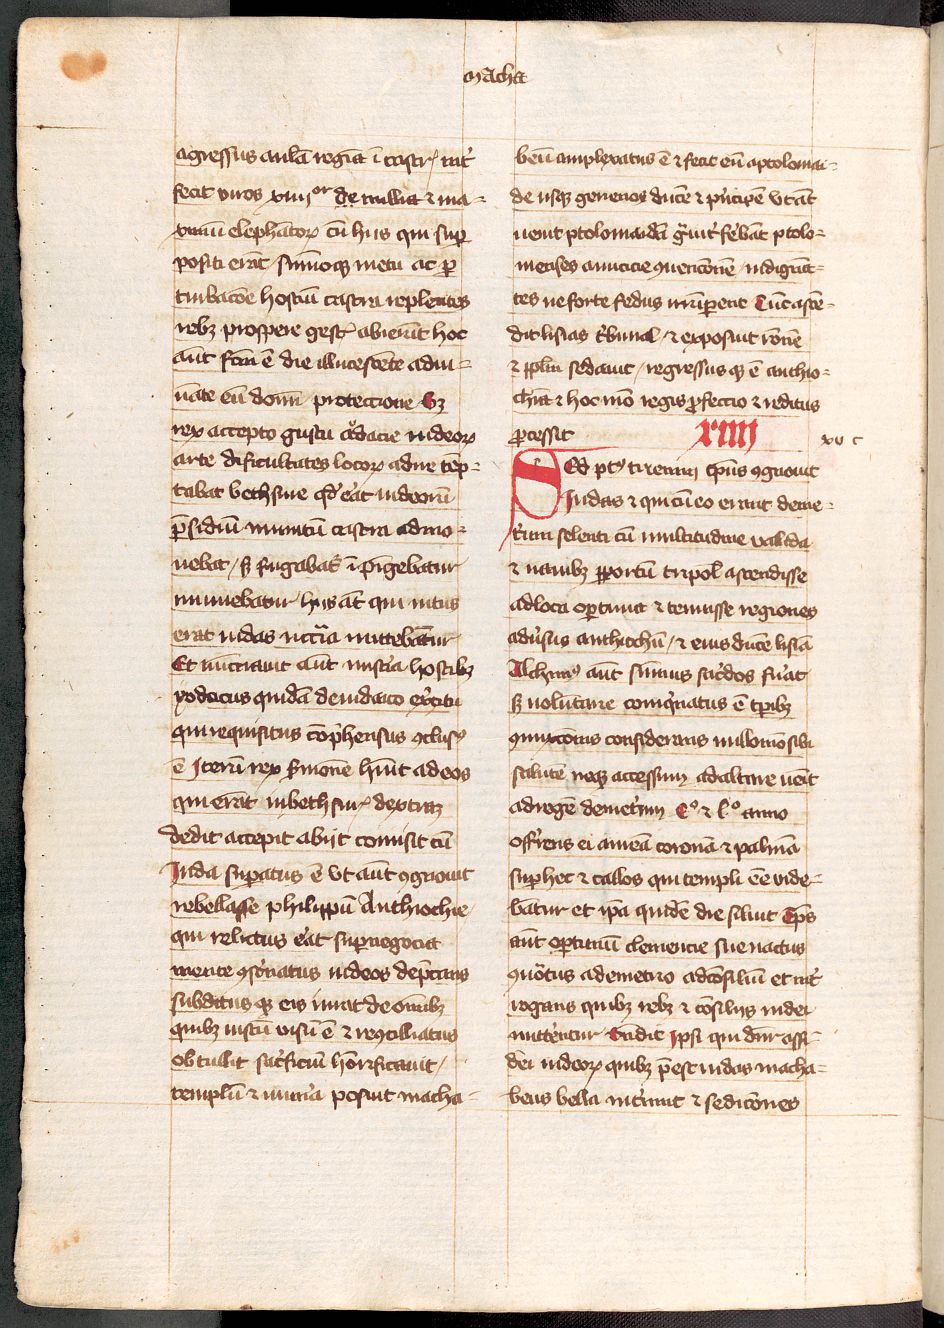 macha
agressus aulã regiã ĩ castrʼ int̾
fecit viros xiiijor de millia ⁊ ma-
ximũ elephãtoꝝ cũ hiis qui sup̱
positi erãt sũmoqꝫ metu ac ꝑ
turbacõe hostiũ castra replentes
rebꝫ prospere gestʼ abierũt hoc
aũt fc̃m ẽ die illucescẽte adiu-
uãte eũ domĩ protectione Sꝫ
rex accepto gustu audacie iudeoꝝ
arte dificultates locoꝝ adire tẽp-
tabat bethsure qd̾ erat iudeorũ
p̃sidiũ munitũ castra admo-
uebat / sꝫ fugabat̾ ĩpĩgebatur
minuebatur hiis aũt qui intus
erãt iudas nccr̃ia mittebatur
Et nũciauit aũt mistĩa hostibꝫ
rodocus quidã de iudaico exc̾itu
qui requisitus cõp̃hensus ꝯclusꝰ
ẽ Iterũ rex s̾monẽ hũit ad eos
qui erãt in bethsurʼ dextraꝫ
dedit accepit abijt comisit cũ
Iuda sup̱atus ẽ vt aũt ꝯgnouit
rebellasse philippũ Anthiochie
qui relictus erat sup̱ negocia
mente ꝯst̾natus iudeos dep̃cans
subditus qꝫ eis iurat de om̃ibꝫ
quibꝫ iustũ visũ ẽ ⁊ recõciliatus
obtullit sac̾ficiũ hõrificauit /
templũ ⁊ mun̾a posuit macha-
beũ amplexatus ẽ ⁊ fecit eũ a ptolomai-
de usqꝫ generios ducẽ ⁊ prĩcipẽ vt aũt
uenit ptolomaidã g̃uit̾ ferebãt ptolo-
menses amicicie ꝯuencionẽ indignã-
tes ne forte fedus irrũperẽt Tũc ascẽ-
dit lisias t̾bunal / ⁊ exposuit rõnẽ
⁊ pplm̃ sedauit / regressus qꝫ ẽ anthio-
chiã ⁊ hoc mõ regis ꝓfectio ⁊ reditus
ꝓcessit xiiij
xv c
Sed pt̾ trienniũ tp̃us ꝯgnouit
Iudas ⁊ qui cũ eo erant deme-
t̾ium selenti cũ multitudine valida
⁊ nauibꝫ ꝑ portũ tripolʼ ascendisse
ad loca oportuna ⁊ tenuisse regiones
adu̾sus anthiochũ / ⁊ eius ducẽ lisiã
Alchimʼ aũt sũmus sac̾dos fu̾at
sꝫ volũtarie coinq̾natus ẽ tp̱ibꝫ
ꝯmixtonis considerans nullo mõ sibi
salutẽ neqꝫ accessum ad altare uenit
ad regẽ demetriũ Cº ⁊ lº anno
offerens ei aureã coronã ⁊ palmã
sup̱ hec ⁊ tallos qui templi ẽe vide-
batur et ip̃a quidẽ die siluit Tp̃s
aũt oportunũ clemencie sue nactus
ꝯuocatus a demetrio ad cõsiliũ et int̾
rogans quibꝫ rebꝫ ⁊ cõsiliis iudei
nit̾entur Rndit Ipsi qui dnr̃ assi-
dei iudeoꝝ quibꝫ p̃est iudas macha-
beus bella nut̾unt ⁊ sediciones